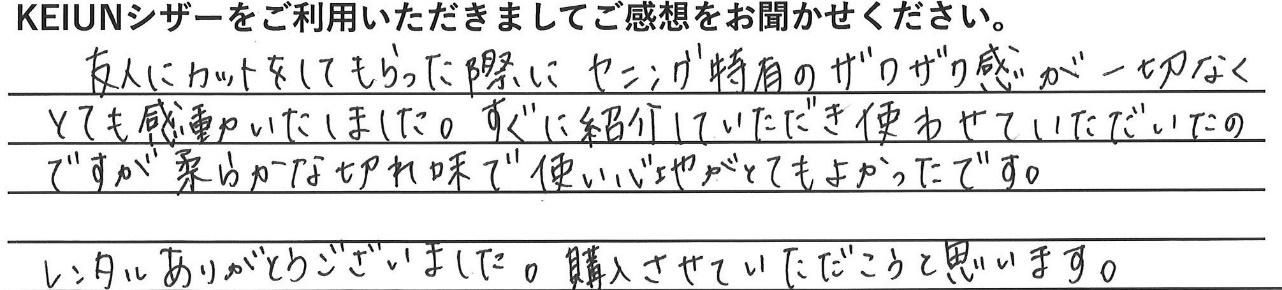 KEIUNシザーをご利用いただきましてご感想をお聞かせください。
友人にカットをしてもらった際に セニング特有のザワザワ感が一切なく
とても感動いたしました。すぐに紹介していただき使わせていただいたの
ですが柔らかな切れ味で使い心地がとてもよかったです。
レンタルありがとうございました。購入させていただこうと思います。